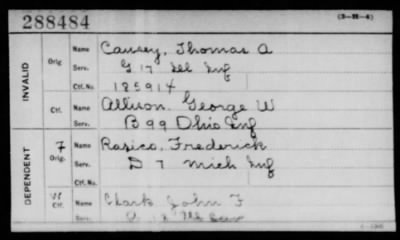 288484
(3-22-4)
INVALID
Orig.
Name Causey, Thomas A
Serv. G 17 Ill Inf
Ctf. No. 185914
Ctf.
Name Allison, George W
Serv. B 99 Ohio Inf
DEPENDENT
7
Orig.
Name Rasico, Frederick
Serv. D 7 Mich Inf
Ctf. No.
Ctf.
Name Clark John F
Serv. 12 Ill